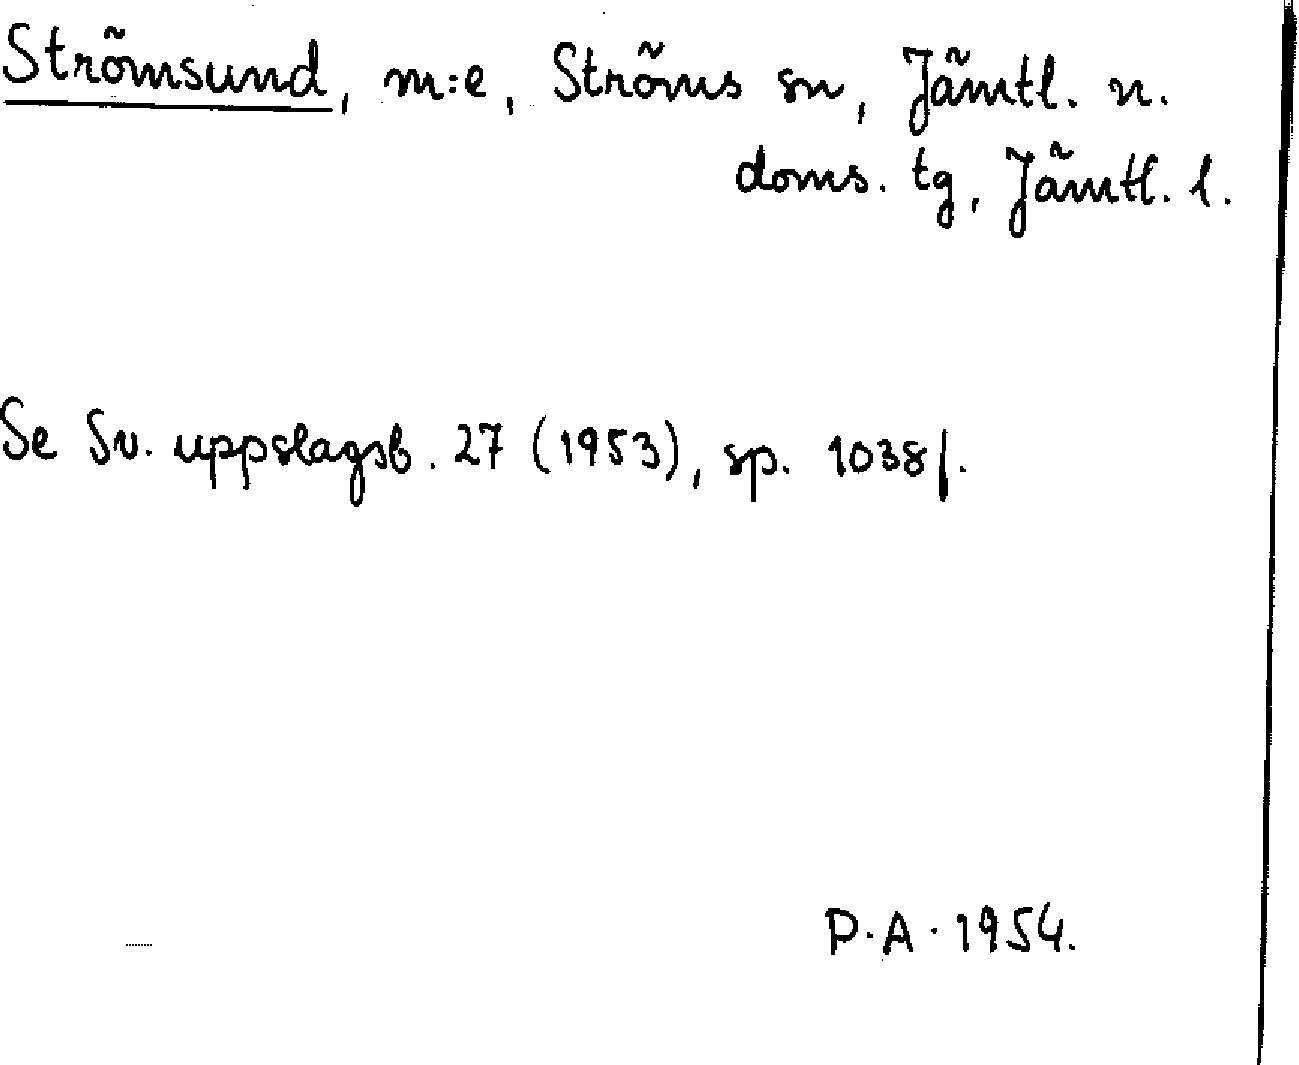 Strömsund, m:e, Ströms sn, Jämtl. n.
doms. tg, Jämtl. l.
Se Sv. uppslagsb. 27 (1953), sp. 1038f.
P.A. 1954.